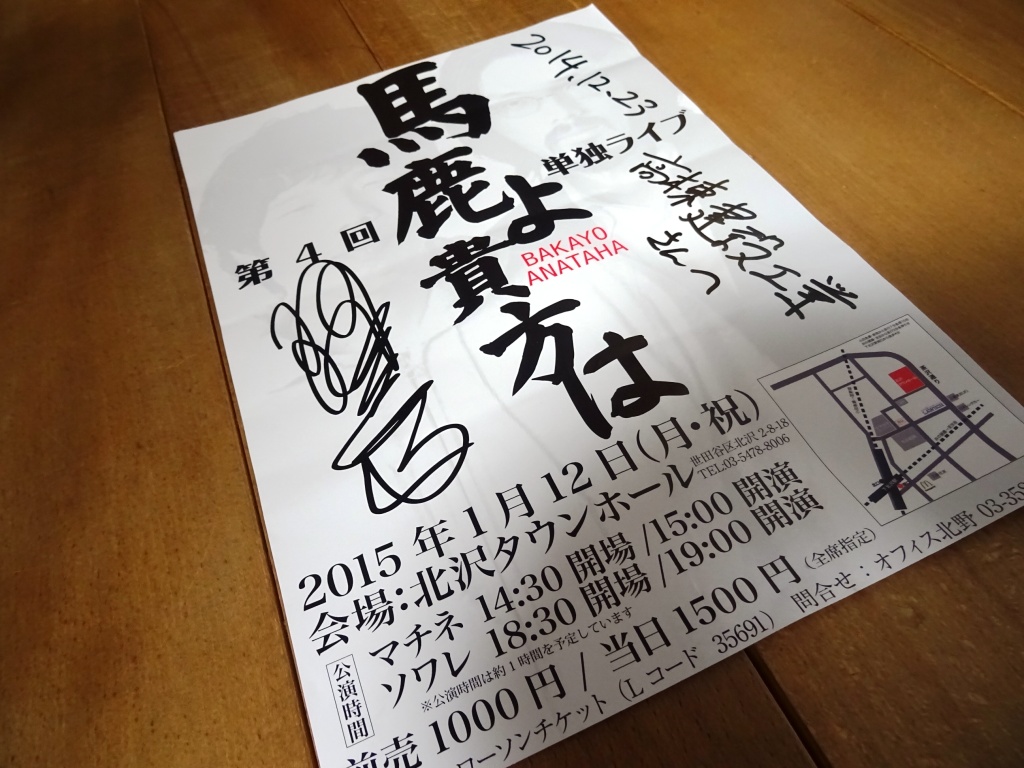 2014.12.23
馬鹿よ貴方は
BAKAYO
ANATAHA
第4回
単独ライブ
棟建設工業
さんへ
2015年1月12日(月・祝)
会場:北沢タウンホール
世田谷区北沢 2-8-18
TEL:03-5478-8006
公演時間
マチネ 14:30 開場 /15:00 開演
ソワレ 18:30 開場 /19:00 開演
※公演時間は約1時間を予定しています
前売 1000円 / 当日 1500円 (全席指定)
ローソンチケット (L コード 35691) 問合せ:オフィス北野 03-35